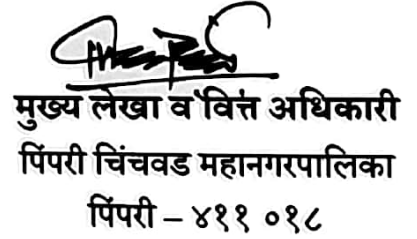 मुख्य लेखा व वित्त अधिकारी
पिंपरी चिंचवड महानगरपालिका
पिंपरी – ४११ ०१८